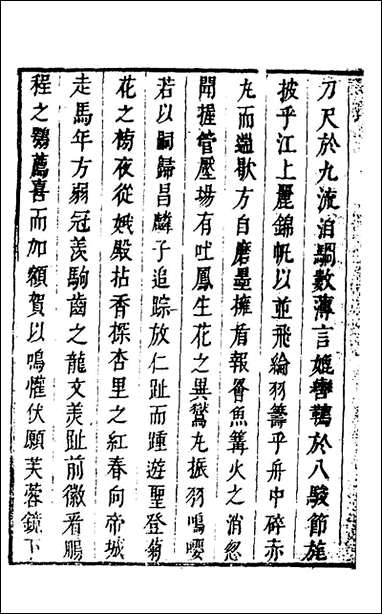 刀尺於九流泊騶數薄言媲響鞫於八駿節旄
披乎江上麗錦帆以並飛綸羽籌乎舟中碎赤
丸而遄歇方自磨墨擁盾報答魚篝火之消忽
聞握管壓場有吐鳳生花之異鸑丸振羽鳴嚶
若以嗣歸昌麟子追踪放仁趾而踵遊聖登菊
花之榜夜從娥殿拈香探杏里之紅春向帝城
走馬年方弱冠羨駒齒之龍文美趾前徽看鵬
程之鶚薦喜而加額賀以鳴懽伏願芙蓉鏡下